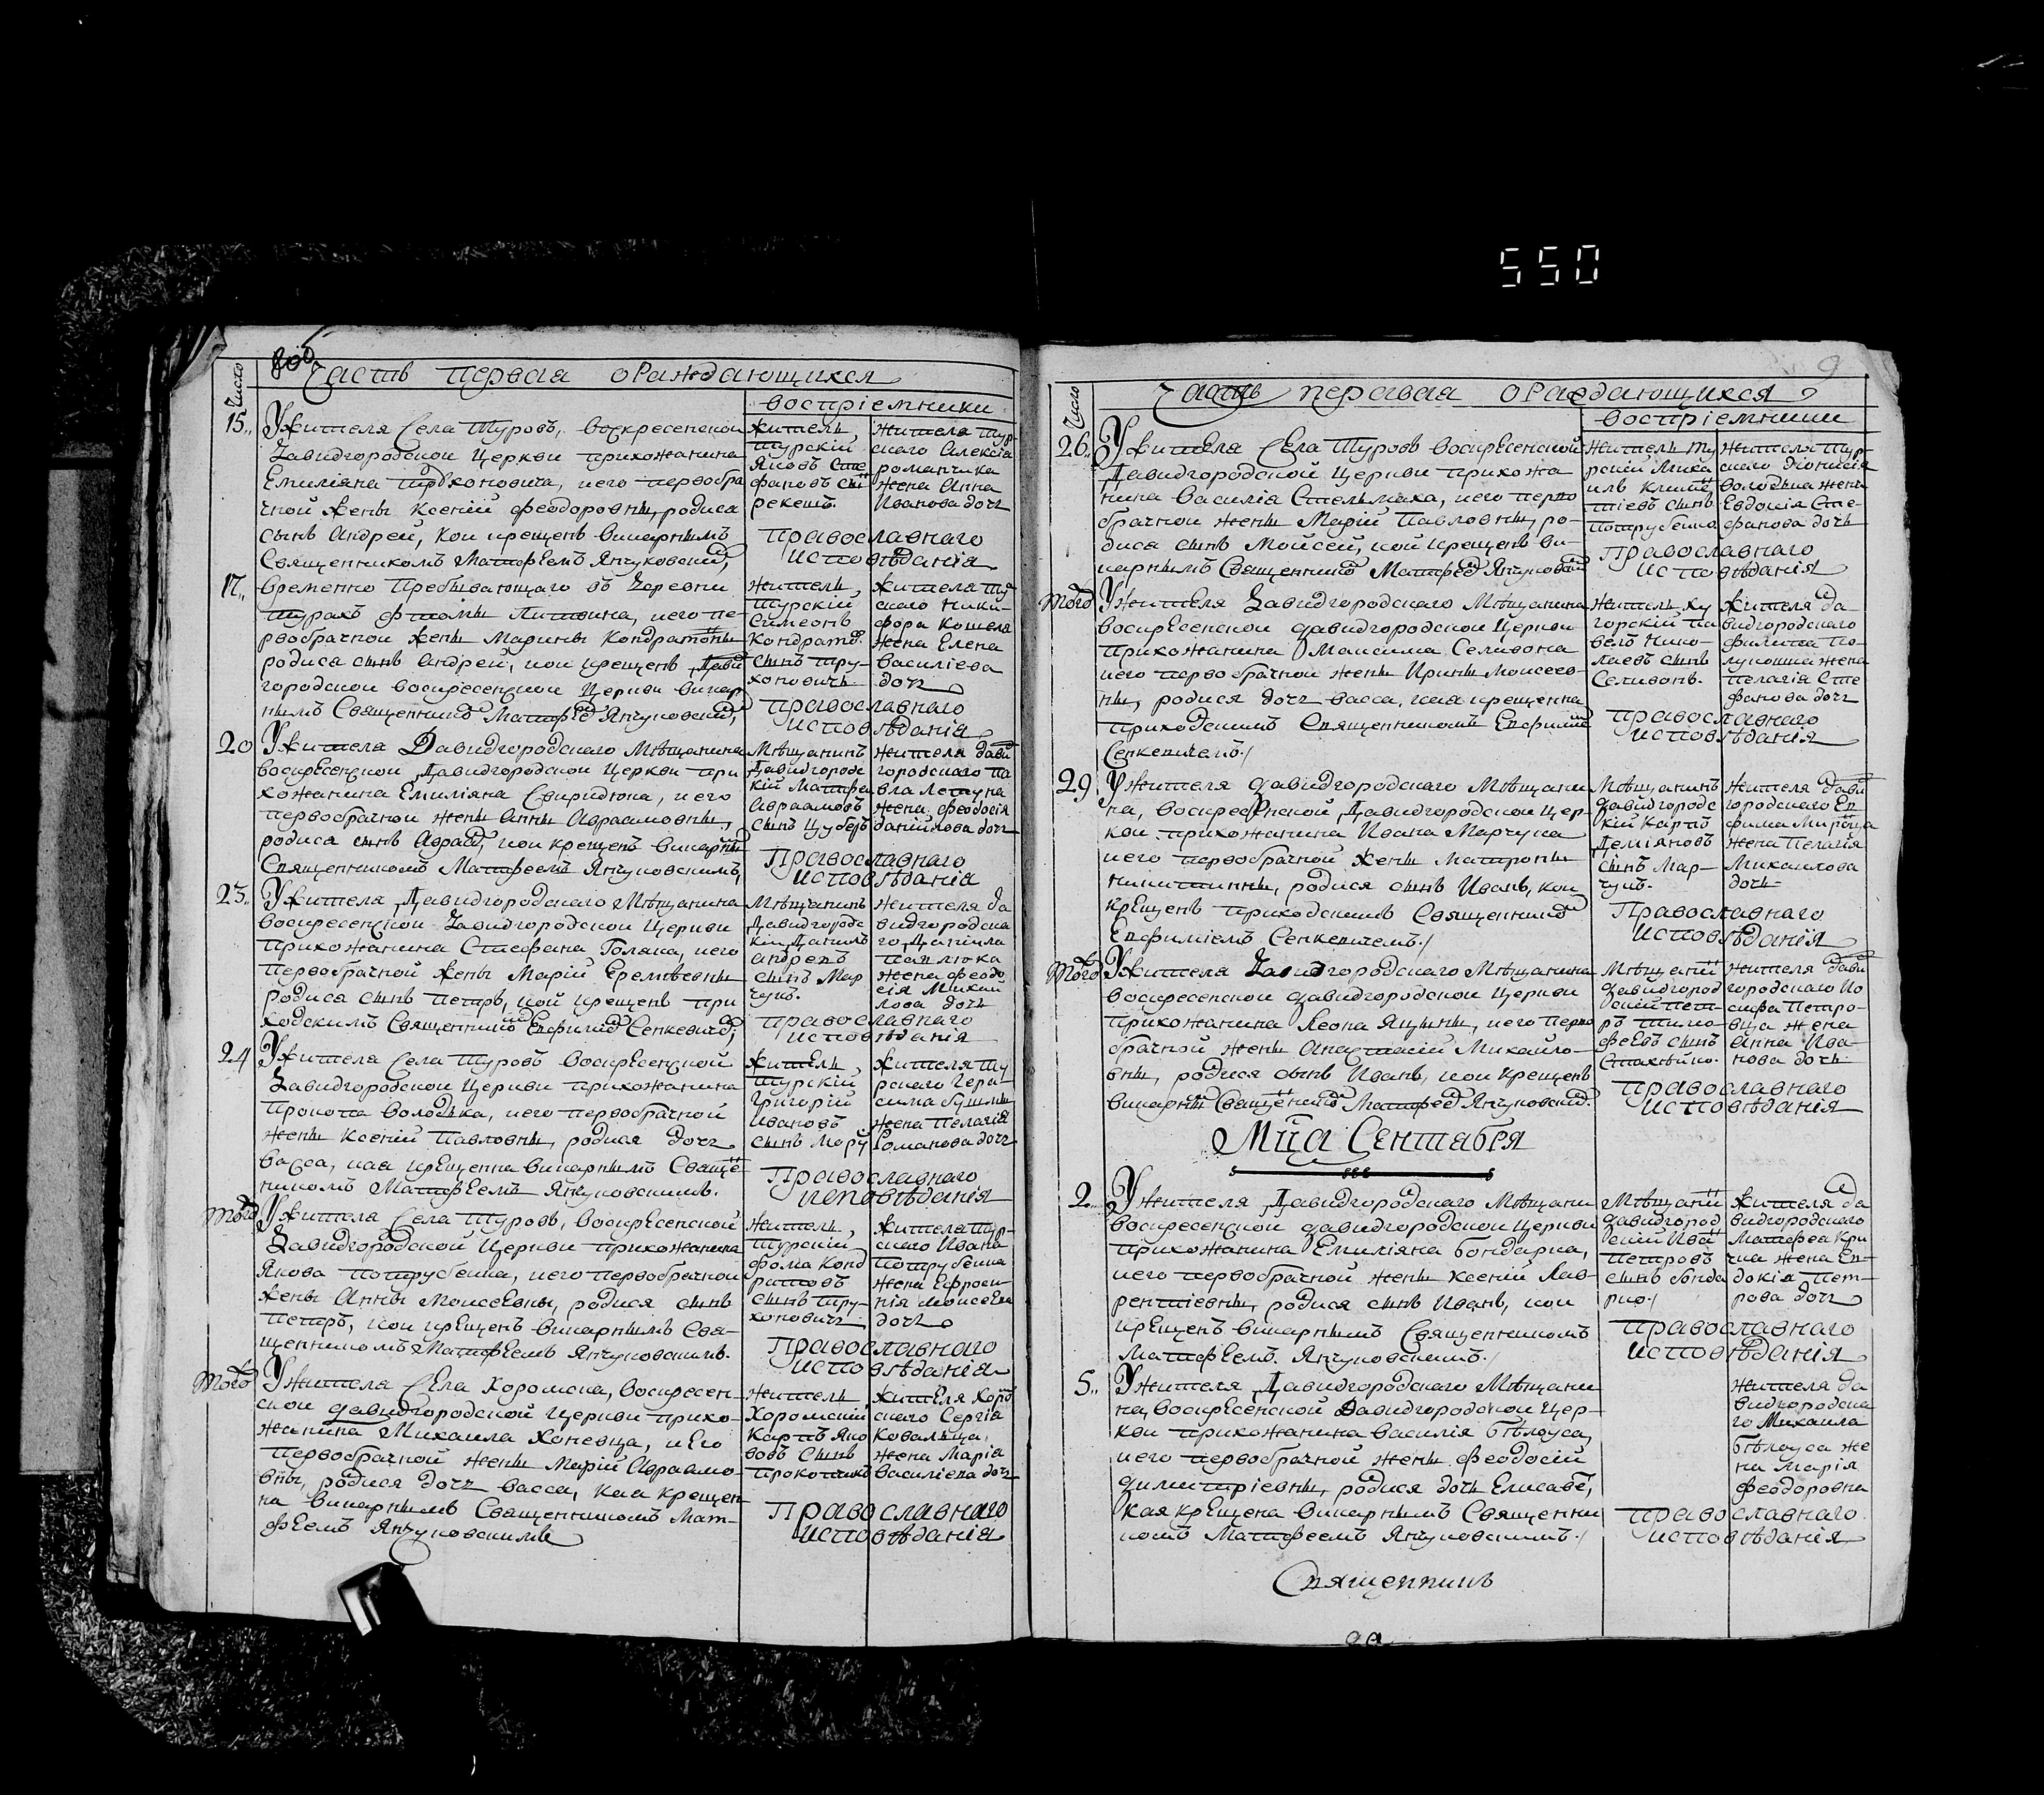 550
8об.
Число
Часть первая о Раждающихся
воспріемники
15.
Ужителя Села Туровъ, воскресенской
Давидгородской Церкви прихожанина
Емиліяна, него первобра
чной жены Ксеніи Феодоровны, родися
сынъ Андрей, кои крещенъ викарнымъ
Священникомъ Матфеемъ Янчуковски,
житель
Турскій
Яковъ Сте
фановъ
рекешъ.
жителя Тур
скаго Алексія
романчика
жена Анна
Иванова дочь
Православнаго
исповѣданія
17.
временно Пребывающаго въ Деревни
Турахъ Фтомы Литвина, него пе
рвобрачной жены Марины Кондратовны
родися сынъ Андрей, кои крещенъ Дави
городской воскресенской Церкви викар
нымъ Священнико Матфе Янчуковски,
житель,
Турскій
Симеонъ
Кондрато
сынъ тру-
хоновичъ
жителя Ту
скаго Ники-
фора Кошела
жена Елена
Василіева
дочь
православнаго
исповѣданія
20
Ужителя Давидгородскаго Мѣщанина
воскресенской Давидгородской Церкви при
хожанина Емиліяна Свиридюка, него
первобрачной жены Анны Авраамовны,
родися сынъ Авраа, кои крещенъ викарны
Священникомъ Матфеемъ Янчуковскимъ,
Мѣщанинъ
Давидгородс
кій Матфе
Авраамовъ
сынъ Цуберъ
жителя Дави
городскаго Па
вла Летуна
жена Феодосія
Даніилова дочь
Православнаго
исповѣданія
23.
Ужителя Давидгородскаго Мѣщанина
воскресенской Давидгородской Церкви
прихожанина Стефана Голяка, него
первобрачной жены Маріи Еремѣевны
родися сынъ петръ, кой крещенъ при
ходскимъ Священнико Евфиміе Сенкевиче,
Мѣщанинъ
Давидгородс
кій Данилъ
андреевъ
сынъ Мар
чукъ.
жителя Да
видгородска
го Даніила
павлюка
жена Феодо
сія Михаи
лова дочь
православнаго
исповѣданія
24
Ужителя Села Туровъ воскресенской
Давидгородской Церкви прихожанина
Прокопа володька, него первобрачной
жены Ксеніи Павловны, родися дочь
васса, коя крещенна викарнымъ Свяще
никомъ Матфеемъ Янчуковскимъ.
житель,
Турскій
Григорій
Ивановъ
сынъ
жителя Ту
рскаго Гера-
сима
жена Пелагія
Романова дочь
Православнаго
исповѣданія
Того
Ужителя Села Туровъ, воскресенской
Давидгородской Церкви прихожанина
Якова потрубейка, него первобрачной
жены Анны Моисеевны, родися сынъ
петръ, кои крещенъ викарнымъ Свя-
щенникомъ Матфеемъ Янчуковскимъ.
житель,
турскій
фома Конд
ратовъ
сынъ тру-
хоновичъ
жителя Тур-
скаго Ивана
потрубейка
жена Ефроси-
нія Моисеева
дочь
Православнаго
исповѣданія
Того
Ужителя Села Хоромска, воскресен-
ской Давидгородской Церкви прихо-
жанина Михаила Хоневца, него
первобрачной жены Маріи Авраамо-
вны, родися дочь васса, коя крещен-
на викарнымъ Священникомъ Мат-
феемъ Янчуковскимъ
житель
Хоромскій
Карпъ Яко
вовъ Сынъ
жителя Хоро
скаго Сергія
Ковальца,
жена Марія
Василіева дочь
Православнаго
исповѣданія
9
Число
Часть первая о Раждающихся
воспріемники
26.
Ужителя Села Туровъ воскресенской
Давидгородской Церкви прихожа
нина Василія Стельмаха, него перво
брачной жены Маріи Павловны, ро-
дися сынъ Мойсей, кой крещенъ ви-
карнымъ Священнико Матфе Янчуковски
житель Ту
рскій Миха
илъ Климе
тіевъ сынъ
потрубейко
жителя Тур-
скаго Діонисія
володька жена
Евдокія Сте-
фанова дочь
православнаго
исповѣданія
Того
Ужителя Давидгородскаго Мѣщанина
воскресенской давидгородской Церкви
прихожанина Максима Селивона
него первобрачной жены Ирины Моисеев-
ны, родися дочь васса, коя крещенна
приходскимъ Священникомъ Евфиміе
Сенкевичемъ./
житель ху
горскій па
велъ Нико-
лаевъ сынъ
Селивонъ.
жителя да
видгородскаго
Филипа по-
лукошка жена
пелагія Сте
фанова дочь
православнаго
исповѣданія
29.
Ужителя давидгородскаго Мѣщани
на, воскресенской Давидгородской Цер-
кви прихожанина Ивана Марчука
него первобрачной жены Матроны
никитины, родися сынъ Иванъ, кои
крещенъ приходскимъ Священнико
Евфиміемъ Сенкевичемъ./
Мѣщанинъ
давидгородс
кій Карпъ
Деміяновъ
сынъ Мар-
чукъ.
жителя Дави
городскаго Ев
фима
жена Пелагія
Михаилова
дочь
Православнаго
исповѣданія
Того
Ужителя Давидгородскаго Мѣщанина
воскресенской давидгородской Церкви
прихожанина Леона Яцины, него перво
брачной жены Анастасіи Михайло-
вны, родися сынъ Иванъ, кои крещенъ
викарны Священнико Матфе Янчуковски.
Мѣщани
давидгород
скій пет-
ръ тимо-
феевъ сынъ
Стахѣйко.
жителя Дави
городскаго Ио
сифа Петро-
вца жена
Анна Ива-
нова дочь
Православнаго
исповѣданія
Мца Сентября
2.
Ужителя Давидгородскаго Мѣщани
воскресенской давидгородской Церкви
прихожанина Емиліяна бондарка,
него первобрачной жены Ксеніи Лав-
рентіевны, родися сынъ Иванъ, кои
крещенъ викарнымъ Священникомъ
Матфеемъ Янчуковскимъ./
Мѣщани
давидгород
скій Ива
петровъ
сынъ бонда
рко./
жителя да
видгородскаго
Матфеа Кри
чка жена Ев-
докія Пет-
рова дочь
православнаго
исповѣданія
5.
Ужителя Давидгородскаго Мѣщани
на, воскресенской Давидгородской Цер-
кви прихожанина Василія бѣлоуса,
него первобрачной жены Феодосіи
димитріевны, родися дочь Елисаве,
кая крещена викарнымъ Священни
комъ Матфеемъ Янчуковскимъ./
жителя да
видгородска
го Михаила
бѣлоуса же
на Марія
Феодоровна
православнаго
исповѣданія
Священникъ